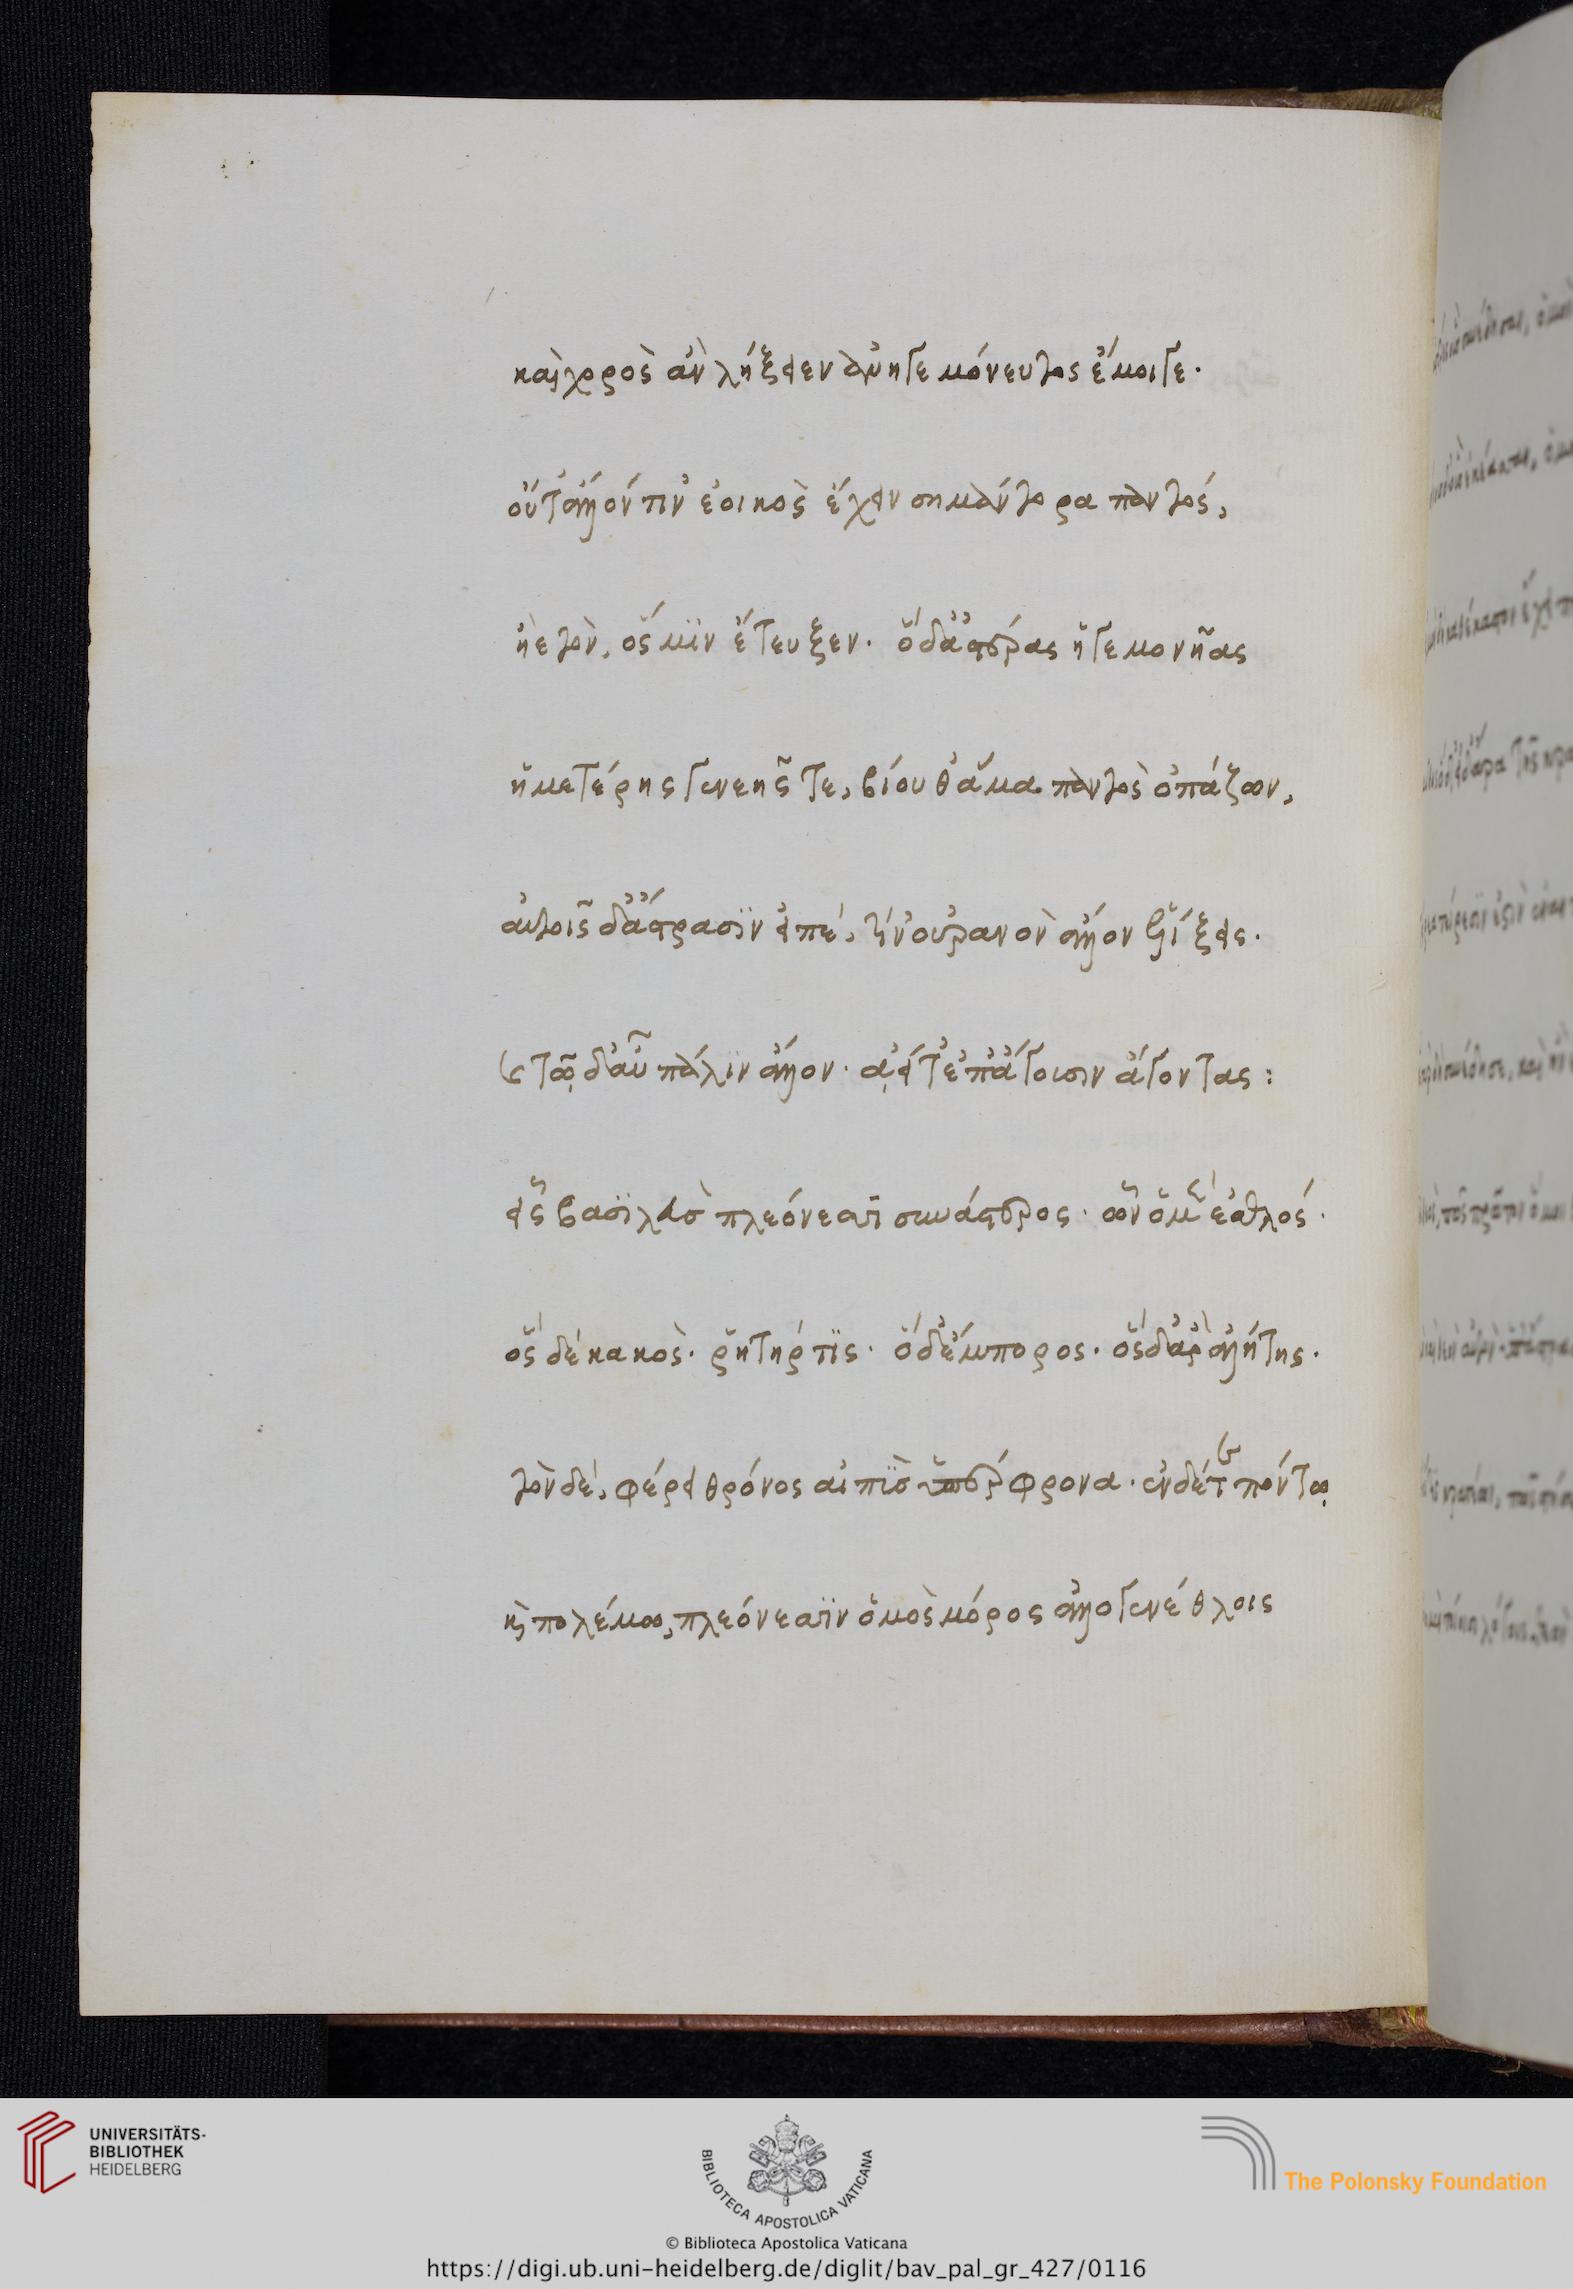 καὶ χορὸς ἂν λήξειεν ἀνηγεμόνευτος ἔμοιγε·
οὔτ' ἄλλόν τιν' ἐοικὸς ἔχειν σημάντορα παντός,
ἠὲ τὸν, ὅς μϊν ἔτευξεν· ὁ δ' ἀστέρας ἡγεμονῆας
ἡμετέρης γενεῆς τε, βίου θ' ἅμα παντὸς ὀπάζων,
αὐτοῖς δ' ἄστρασϊν εἰπέ, τίν' οὐρανὸν ἄλλον
τῷ δ' αὖ πάλϊν ἄλλον· ἀεί τ' ἐπ' ἄγοισιν ἄγοντας:
εἷς βασϊλεὺσ πλεόνεσσϊ συνάστερος· ὧν ὁ μὲν ἐσθλός·
ὃς δὲ κακὸς· ῥητήρ τϊς· ὁ δ' ἔμπορος· ὃς δ' ἄρ' ἀλήτης·
τὸν δὲ, φέρει θρόνος αἰπὺσ ὑπέρφρονα· ἐν δέ τε πόντῳ
καὶ πολέμῳ, πλεόνεσσϊν ὁμὸς μόρος ἀλλογενέθλοις
UNIVERSITÄTS-
BIBLIOTHEK
HEIDELBERG
BIBLIOTECA APOSTOLICA VATICANA
The Polonsky Foundation
© Biblioteca Apostolica Vaticana
https://digi.ub.uni-heidelberg.de/diglit/bav_pal_gr_427/0116